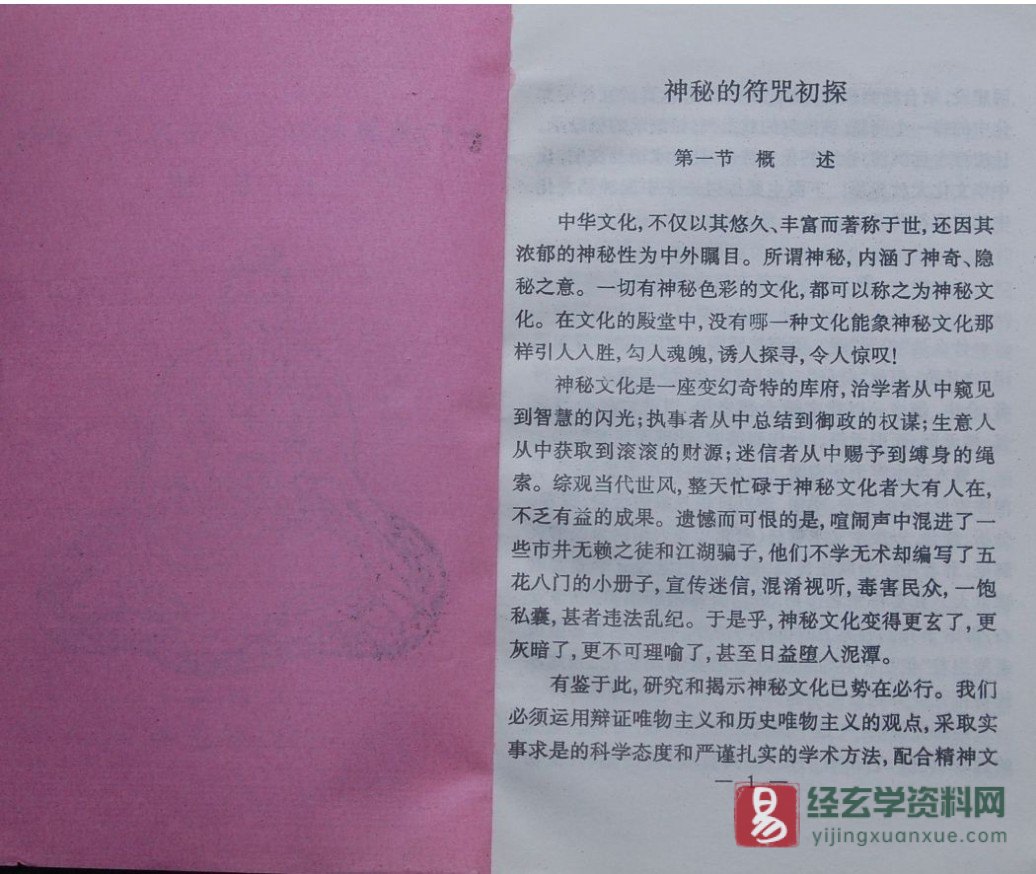 神秘的符咒初探
第一节 概 述
中华文化,不仅以其悠久、丰富而著称于世,还因其
浓郁的神秘性为中外瞩目。所谓神秘,内涵了神奇、隐
秘之意。一切有神秘色彩的文化,都可以称之为神秘文
化。在文化的殿堂中,没有哪一种文化能象神秘文化那
样引人入胜,勾人魂魄,诱人探寻,令人惊叹!
神秘文化是一座变幻奇特的库府,治学者从中窥见
到智慧的闪光;执事者从中总结到御政的权谋;生意人
从中获取到滚滚的财源;迷信者从中赐予到缚身的绳
索。综观当代世风,整天忙碌于神秘文化者大有人在,
不乏有益的成果。遗憾而可恨的是,喧闹声中混进了一
些市井无赖之徒和江湖骗子,他们不学无术却编写了五
花八门的小册子,宣传迷信,混淆视听,毒害民众,一饱
私囊,甚者违法乱纪。于是乎,神秘文化变得更玄了,更
灰暗了,更不可理喻了,甚至日益堕入泥潭。
有鉴于此,研究和揭示神秘文化已势在必行。我们
必须运用辩证唯物主义和历史唯物主义的观点,采取实
事求是的科学态度和严谨扎实的学术方法,配合精神文
— 1 —
易 经玄学资料网
yijingxuanxue.com